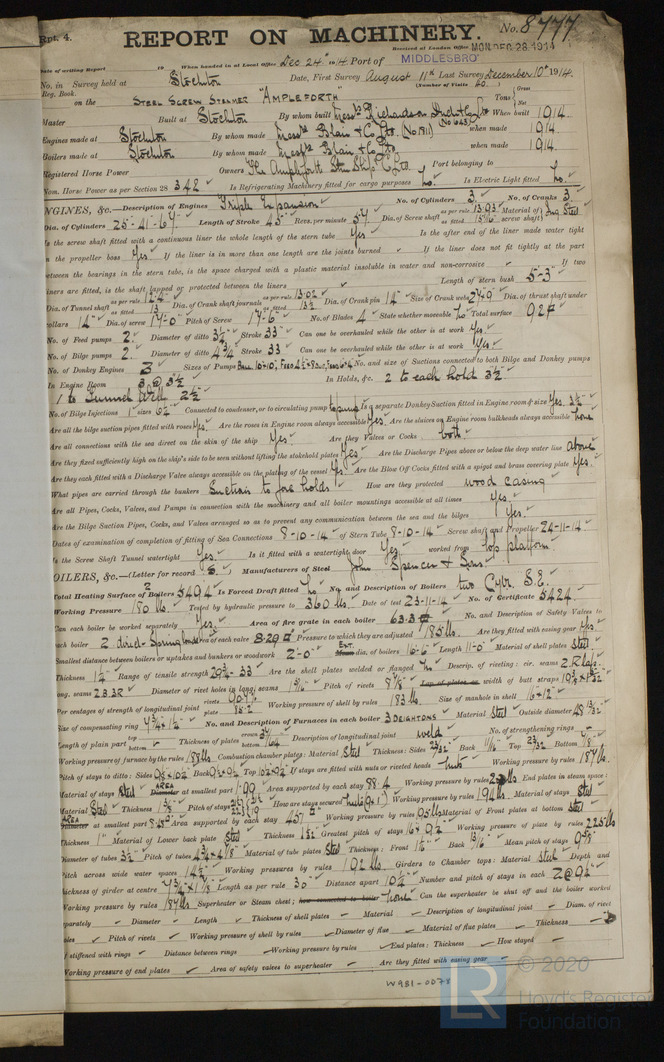 Rpt. 4.
REPORT ON MACHINERY.
No. 8777
Received at London Office MON DEC 28 1914
Date of writing Report 19 When handed in at Local Office Dec 24th 1914 Port of MIDDLESBRO
No. in Survey held at Stockton Date, First Survey August 11th Last Survey December 10th 1914
Reg. Book. (Number of Visits 40)
on the STEEL SCREW STEAMER "AMPLEFORTH" Tons Gross Net
Master Built at Stockton By whom built Mess Richardson Duck & Co Ltd (No 643) When built 1914
Engines made at Stockton By whom made Messrs Blair & Co Ltd (No 1811) when made 1914
Boilers made at Stockton By whom made Messrs Blair & Co Ltd when made 1914
Registered Horse Power Owners The Ampleforth Steam Ship Co Ltd Port belonging to
Nom. Horse Power as per Section 28 342 Is Refrigerating Machinery fitted for cargo purposes No. Is Electric Light fitted No.
ENGINES, &c.—Description of Engines Triple Expansion No. of Cylinders 3 No. of Cranks 3
Dia. of Cylinders 25-41-67 Length of Stroke 45 Revs. per minute 57 Dia. of Screw shaft as per rule 13.93 Material of screw shaft Ing Steel
Is the screw shaft fitted with a continuous liner the whole length of the stern tube Yes Is the after end of the liner made water tight
in the propeller boss Yes If the liner is in more than one length are the joints burned If the liner does not fit tightly at the part
between the bearings in the stern tube, is the space charged with a plastic material insoluble in water and non-corrosive If two
liners are fitted, is the shaft lapped or protected between the liners Length of stern bush 5-3"
Dia. of Tunnel shaft as per rule 12.4 as fitted 13 Dia. of Crank shaft journals as per rule 13.02 as fitted 13½ Dia. of Crank pin 14" Size of Crank webs Dia. of thrust shaft under
collars 14" Dia. of screw 17-0" Pitch of Screw 17-6" No. of Blades 4 State whether moveable No Total surface 92
No. of Feed pumps 2 Diameter of ditto 3½ Stroke 33 Can one be overhauled while the other is at work Yes
No. of Bilge pumps 2 Diameter of ditto 4¾ Stroke 33 Can one be overhauled while the other is at work Yes
No. of Donkey Engines 3 Sizes of Pumps No. and size of Suctions connected to both Bilge and Donkey pumps
In Engine Room 3 @ 3½ In Holds, &c. 2 to each hold 3½"
1 to Tunnel Well 2½
No. of Bilge Injections 1 sizes 6½ Connected to condenser, or to circulating pump to pump Is a separate Donkey Suction fitted in Engine room & size Yes. 3½"
Are all the bilge suction pipes fitted with roses Yes Are the roses in Engine room always accessible Yes Are the sluices on Engine room bulkheads always accessible None
Are all connections with the sea direct on the skin of the ship Yes Are they Valves or Cocks both
Are they fixed sufficiently high on the ship's side to be seen without lifting the stokehold plates Yes Are the Discharge Pipes above or below the deep water line above
Are they each fitted with a Discharge Valve always accessible on the plating of the vessel Yes Are the Blow Off Cocks fitted with a spigot and brass covering plate Yes
What pipes are carried through the bunkers Suctions to fore holds How are they protected wood casing
Are all Pipes, Cocks, Valves, and Pumps in connection with the machinery and all boiler mountings accessible at all times Yes
Are the Bilge Suction Pipes, Cocks, and Valves arranged so as to prevent any communication between the sea and the bilges Yes
Dates of examination of completion of fitting of Sea Connections 8-10-14 of Stern Tube 8-10-14 Screw shaft and Propeller 24-11-14
Is the Screw Shaft Tunnel watertight Yes Is it fitted with a watertight door Yes worked from top platform
BOILERS, &c.—(Letter for record S) Manufacturers of Steel John Spencer & Sons
Total Heating Surface of Boilers 5494 Is Forced Draft fitted No No. and Description of Boilers two Cyl. S.E.
Working Pressure 180 lbs Tested by hydraulic pressure to 360 lbs. Date of test 23-11-14 No. of Certificate 5424
Can each boiler be worked separately Yes Area of fire grate in each boiler 63.3 No. and Description of Safety Valves to
each boiler 2 direct Spring loaded Area of each valve 8.29 Pressure to which they are adjusted 185 lbs Are they fitted with easing gear Yes
Smallest distance between boilers or uptakes and bunkers or woodwork 2'-0" Ext. dia. of boilers 16-6" Length 11-0" Material of shell plates Steel
Thickness 1¼ Range of tensile strength 29¾-33 Are the shell plates welded or flanged No Descrip. of riveting: cir. seams 2.R. Laps
long. seams 2.B.3R Diameter of rivet holes in long. seams Pitch of rivets 8⅞ Lap of plates or width of butt straps
Per centages of strength of longitudinal joint rivets plate Working pressure of shell by rules 183 lbs Size of manhole in shell 16 x 12"
Size of compensating ring No. and Description of Furnaces in each boiler 3 DEIGHTONS Material Steel Outside diameter
Length of plain part top bottom Thickness of plates crown bottom Description of longitudinal joint weld No. of strengthening rings
Working pressure of furnace by the rules 188 lbs Combustion chamber plates: Material Steel Thickness: Sides 23/32 Back 11/16 Top 23/32 Bottom
Pitch of stays to ditto: Sides Back Top If stays are fitted with nuts or riveted heads nuts Working pressure by rules 187 lbs
Material of stays Steel AREA at smallest part 1.99 Area supported by each stay 88.4 Working pressure by rules End plates in steam space:
Material Steel Thickness Pitch of stays How are stays secured Working pressure by rules 194 lbs Material of stays Steel
AREA at smallest part Area supported by each stay 457 Working pressure by rules Material of Front plates at bottom Steel
Thickness 1" Material of Lower back plate Steel Thickness Greatest pitch of stays Working pressure of plate by rules 225 lbs
Diameter of tubes 3½ Pitch of tubes Material of tube plates Steel Thickness: Front Back Mean pitch of stays
Pitch across wide water spaces 14½ Working pressures by rules 192 lbs Girders to Chamber tops: Material Steel Depth and
thickness of girder at centre Length as per rule 30 Distance apart 10¼ Number and pitch of stays in each 2 @ 9½
Working pressure by rules 187 lbs Superheater or Steam chest; how connected to boiler none Can the superheater be shut off and the boiler worked
separately Diameter Length Thickness of shell plates Material Description of longitudinal joint Diam. of rivet
holes Pitch of rivets Working pressure of shell by rules Diameter of flue Material of flue plates Thickness
If stiffened with rings Distance between rings Working pressure by rules End plates: Thickness How stayed
Working pressure of end plates Area of safety valves to superheater Are they fitted with easing gear
W981-0078
© 2020
LR
Lloyd's Register
Foundation